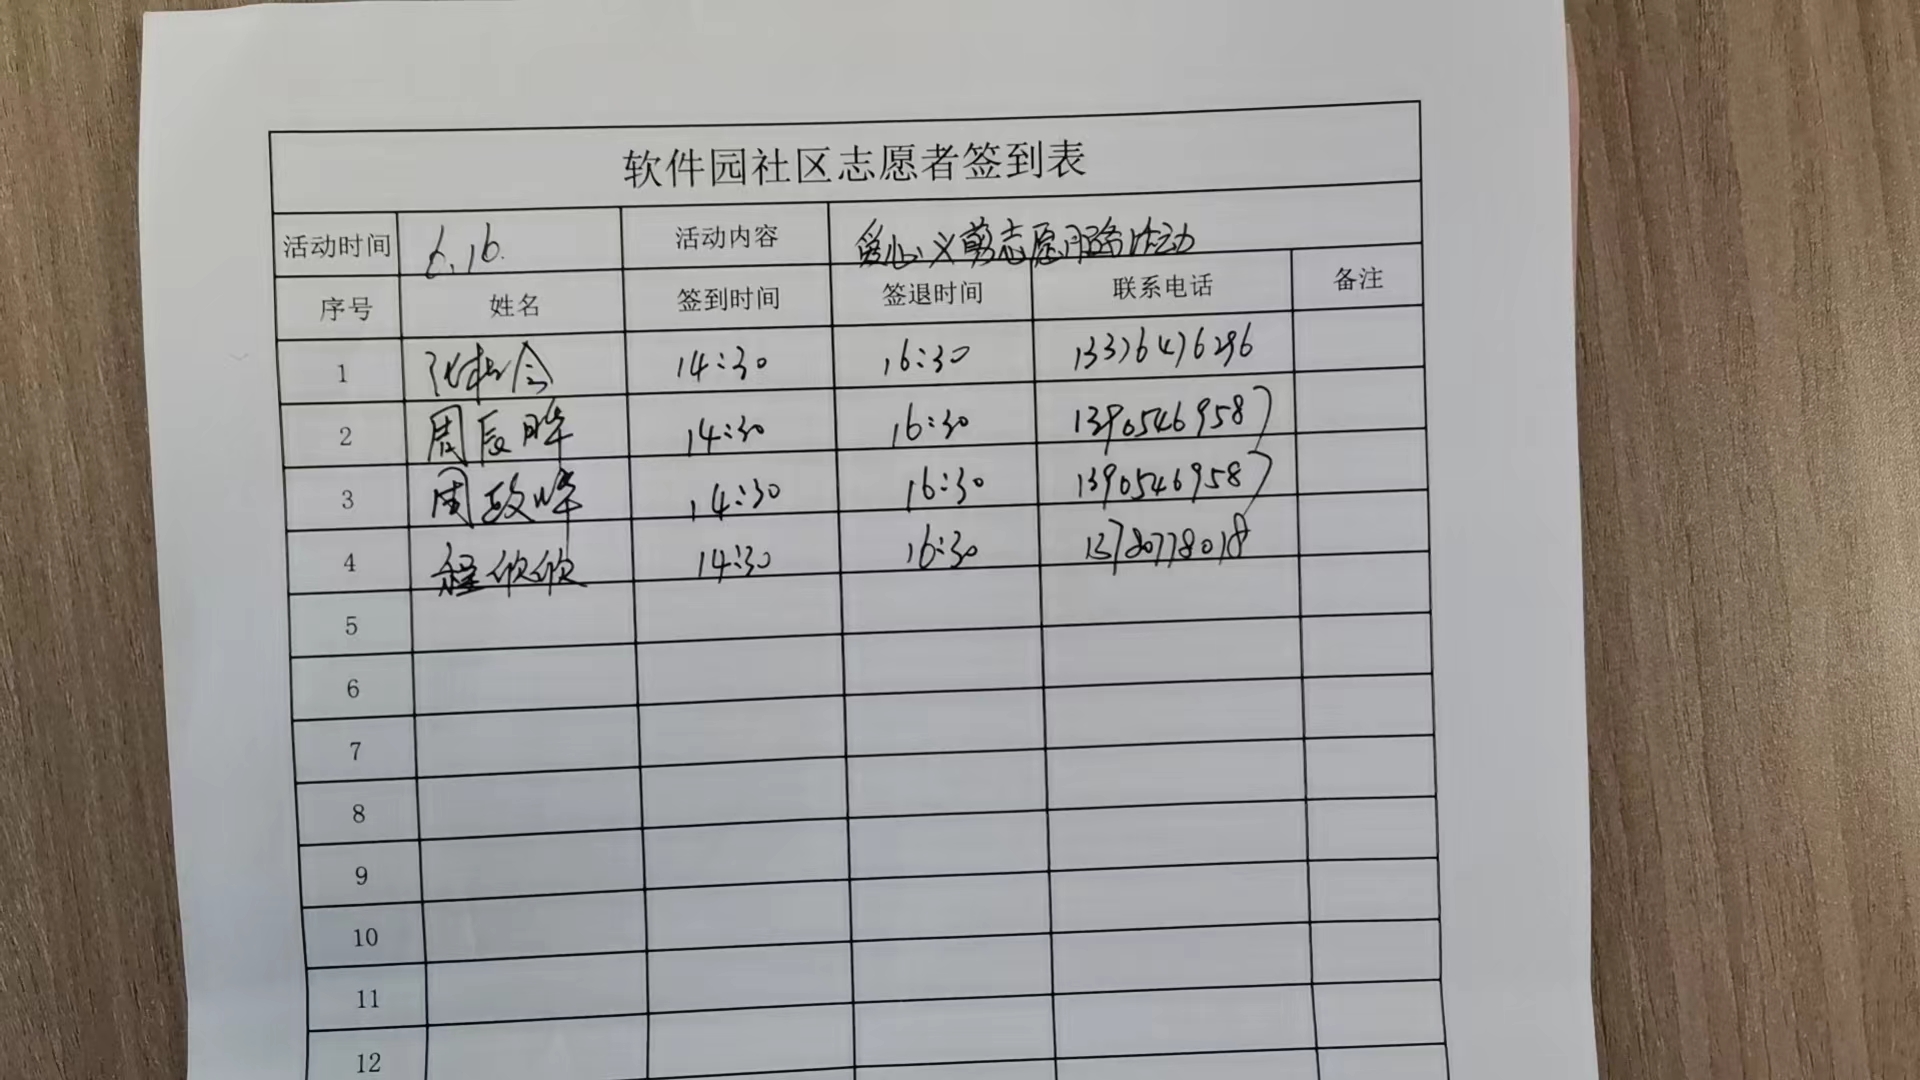 软件园社区志愿者签到表
活动时间 6.16. 活动内容 爱心义剪志愿服务活动
序号 姓名 签到时间 签退时间 联系电话 备注
1 张桂令 14:30 16:30 13376476296
2 周辰晔 14:30 16:30 13905469587
3 周致晔 14:30 16:30 13905469587
4 程欣欣 14:30 16:30 13780778018
5
6
7
8
9
10
11
12